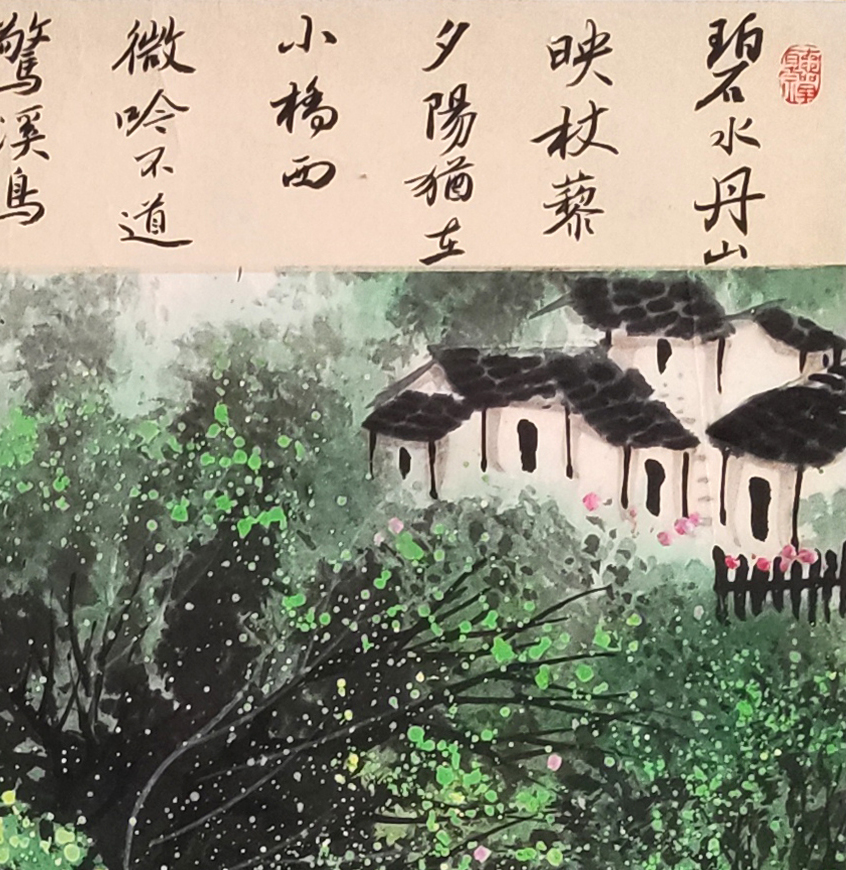 碧水丹山
映杖藜
夕陽猶在
小橋西
微吟不道
驚溪鳥